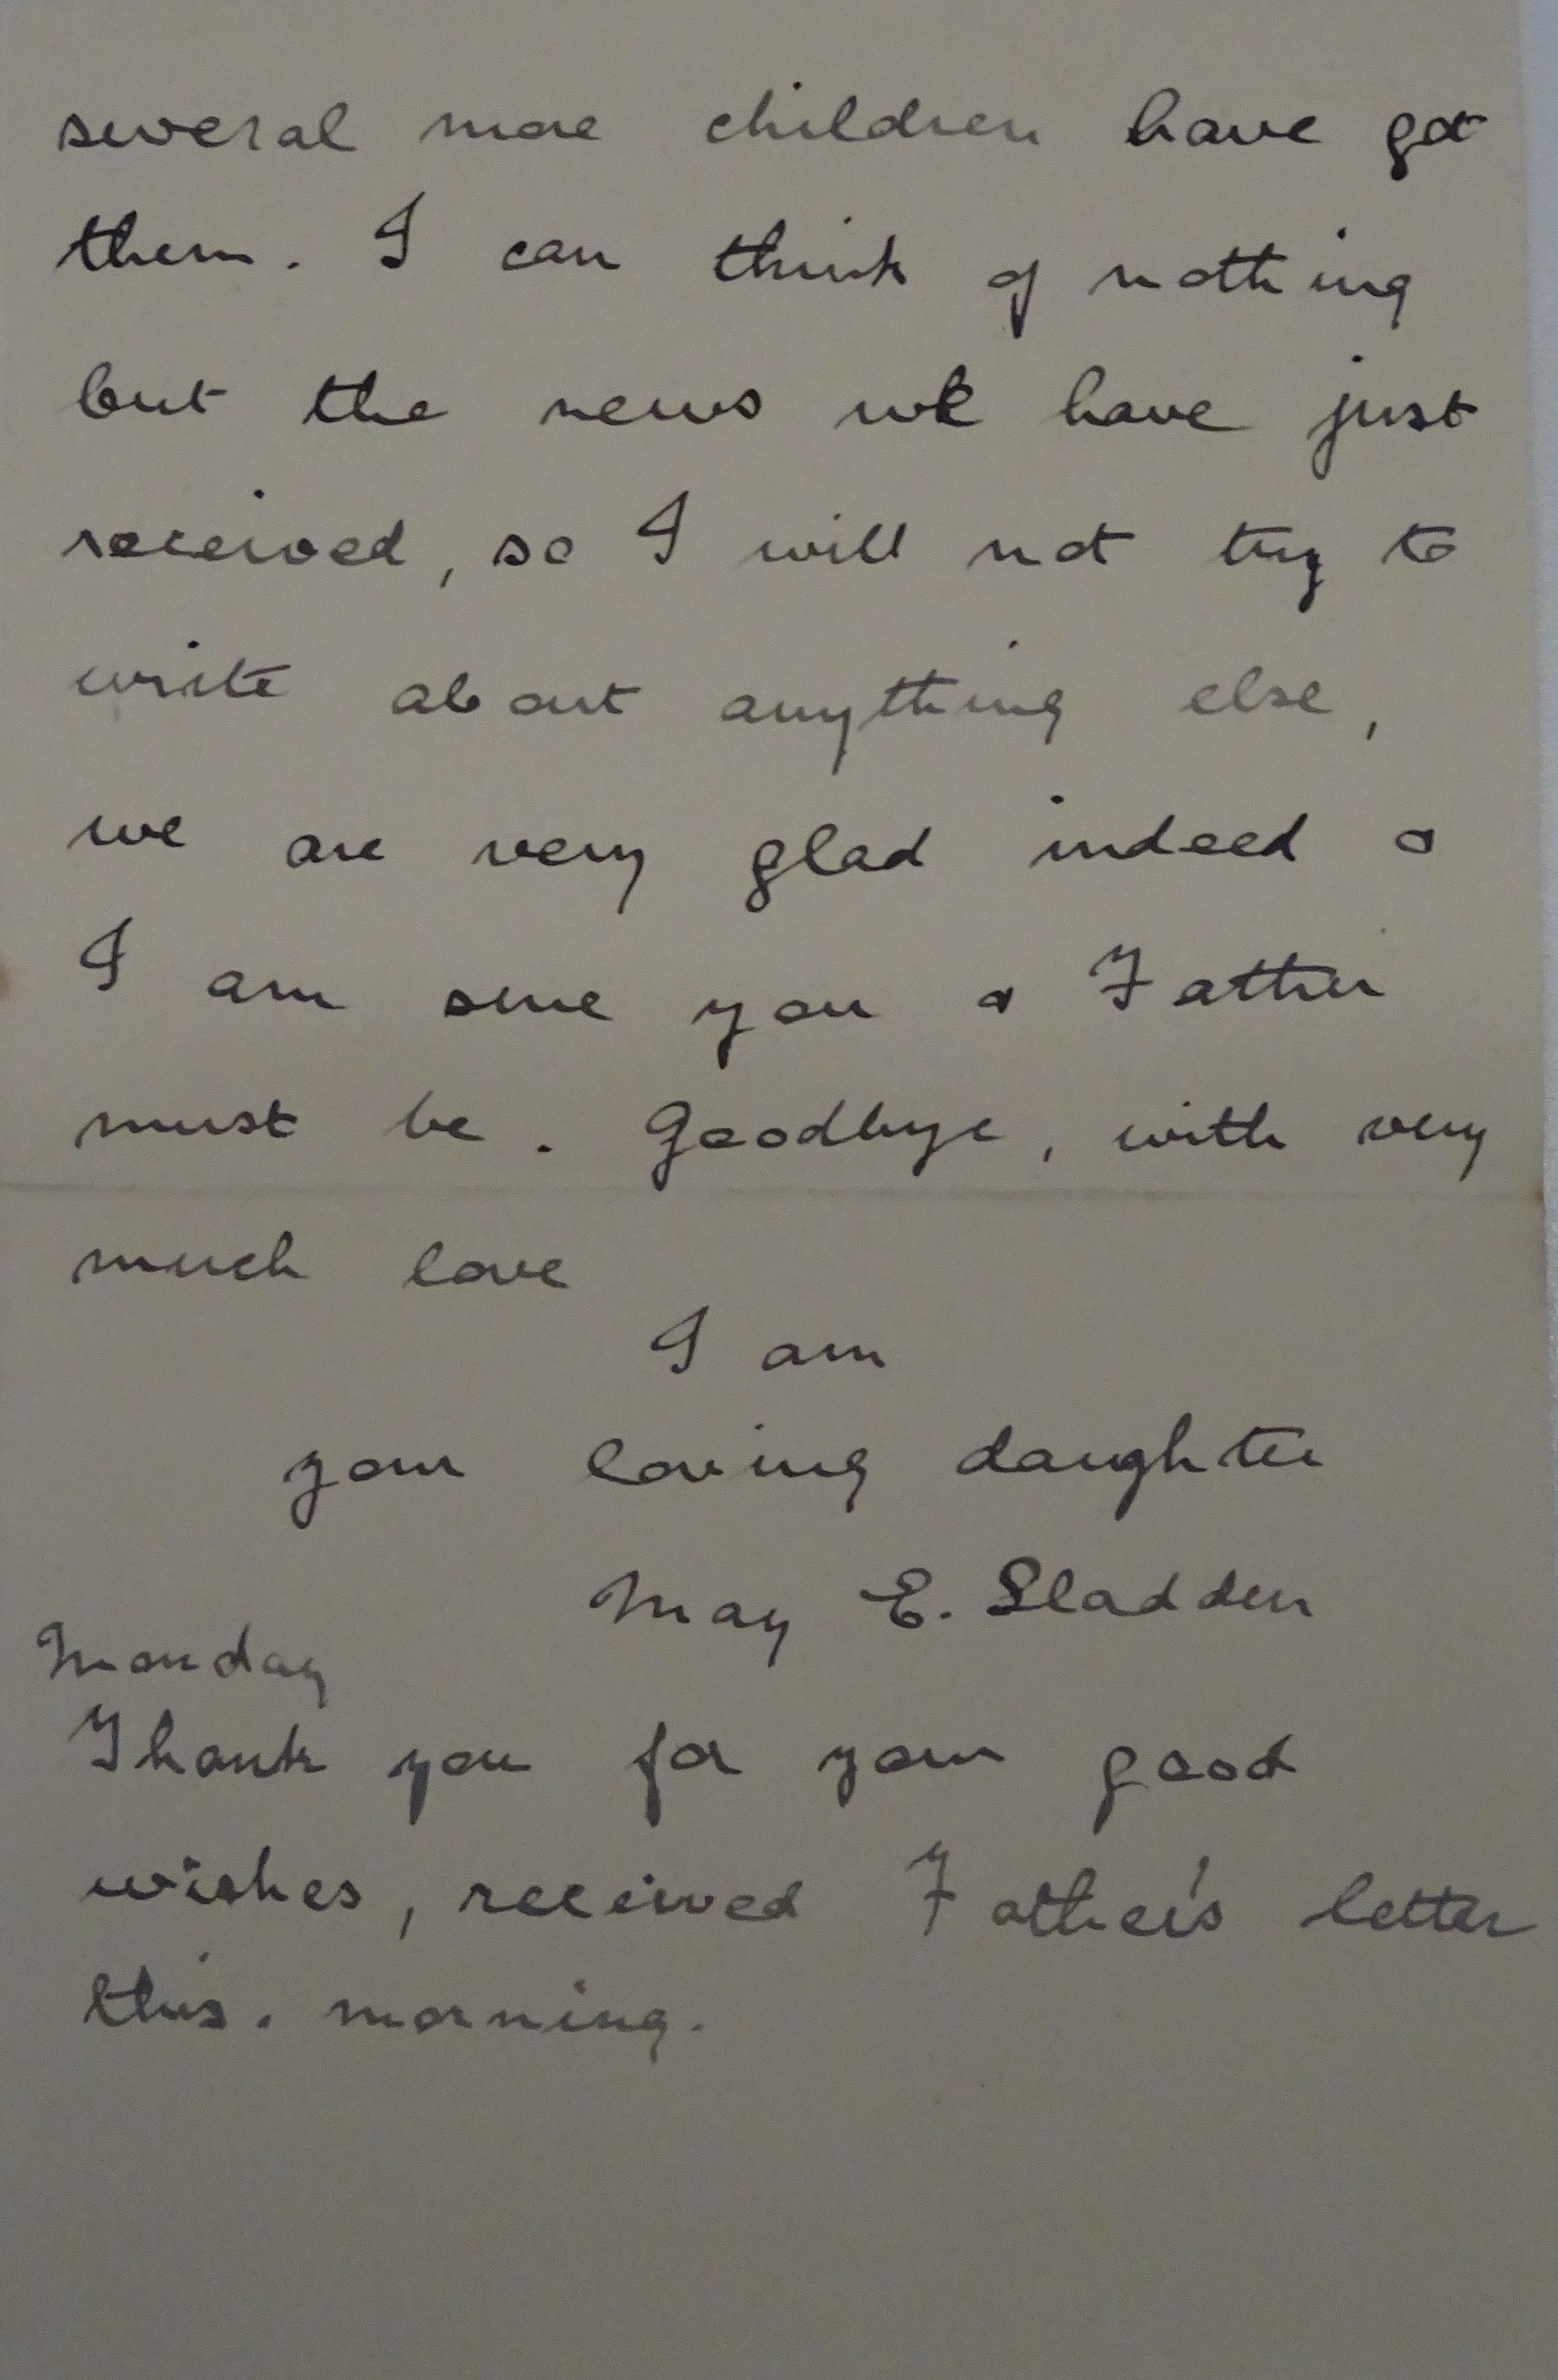 several more children have got
them. I can think of nothing
but the news we have just
received, so I will not try to
write about anything else,
we are very glad indeed &
I am sure you & Father
must be. Goodbye, with very
much love
I am
your loving daughter
May E. Sladden
Monday
Thank you for your good
wishes, received Father's letter
this. morning.